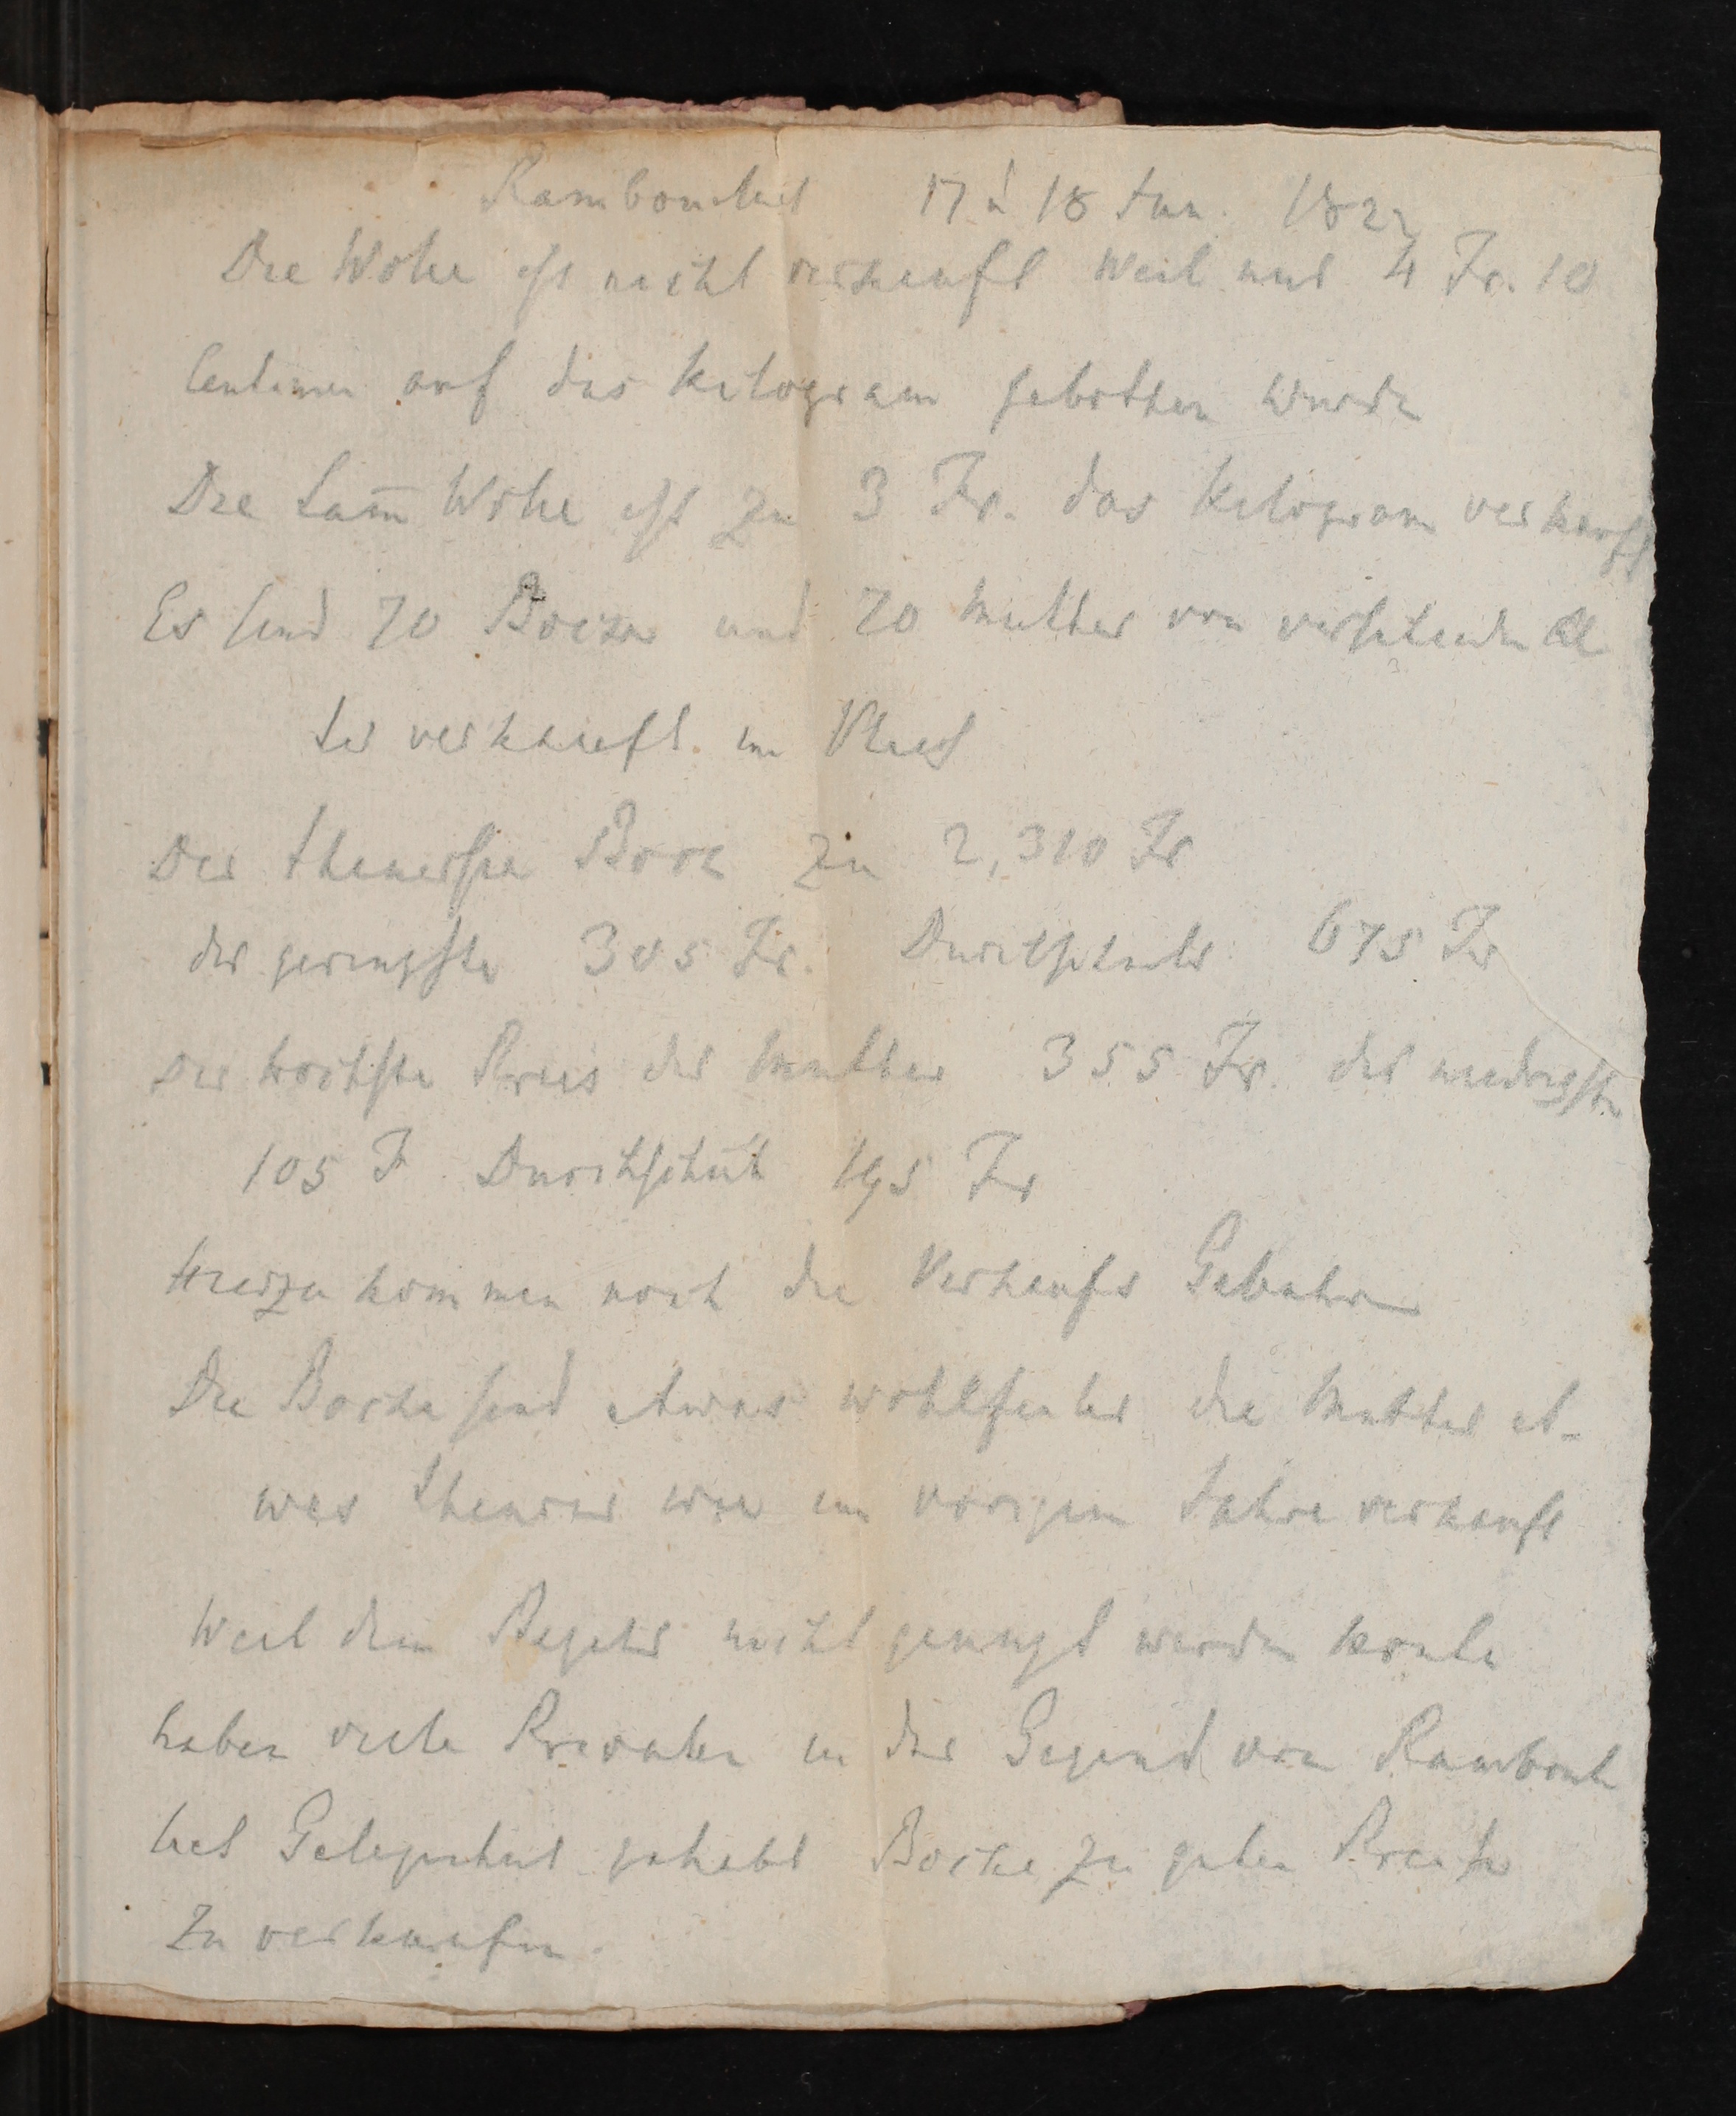 Rambouliet 17 u 18 Jun. 1822
Die Wolle ist nicht verkauft weil nur 4 Fr. 10
Centimen auf das Kilogram gebothen wurde
Die Lam̄ Wolle ist zu 3 Fr. das Kilogram verkauft
Es sind 70 Boecke und 70 Mutter von verschiednen Al
ter verkauft im Vlies
Der theuerste Bock zu 2,310 Fr
der geringste 305 Fr. Durchschnitt 675 Fr
der hochste Preis der Mutter 355 Fr. der niedrigste
105 F Durchschnit 195 Fr
Hierzu kommen noch die Verkaufs Gebuhren
Die Bocke sind etwas wohlfeiler die Mutter et-
was theurer wie im vorigem Jahre verkauft
Weil dem Begehr nicht genugt werden konte
haben viele Privaten in der Gegend von Rambouil
let Gelegenheit gehabt Bocke zu guten Preise
zu verkaufen.